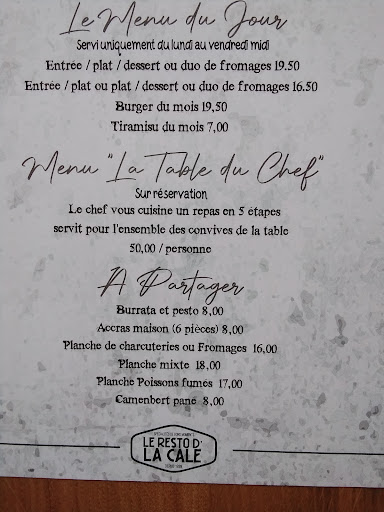 Le Menu du Jour
Servi uniquement du lundi au vendredi midi
Entrée / plat / dessert ou duo de fromages 19.50
Entrée / plat ou plat / dessert ou duo de fromages 16.50
Burger du mois 19,50
Tiramisu du mois 7,00
Menu "La Table du Chef"
Sur réservation
Le chef vous cuisine un repas en 5 étapes
servit pour l'ensemble des convives de la table
50,00 / personne
A Partager
Burrata et pesto 8,00
Accras maison (6 pièces) 8,00
Planche de charcuteries ou Fromages 16,00
Planche mixte 18,00
Planche Poissons fumés 17,00
Camenbert pané 8,00
LE RESTO D'
LA CALE